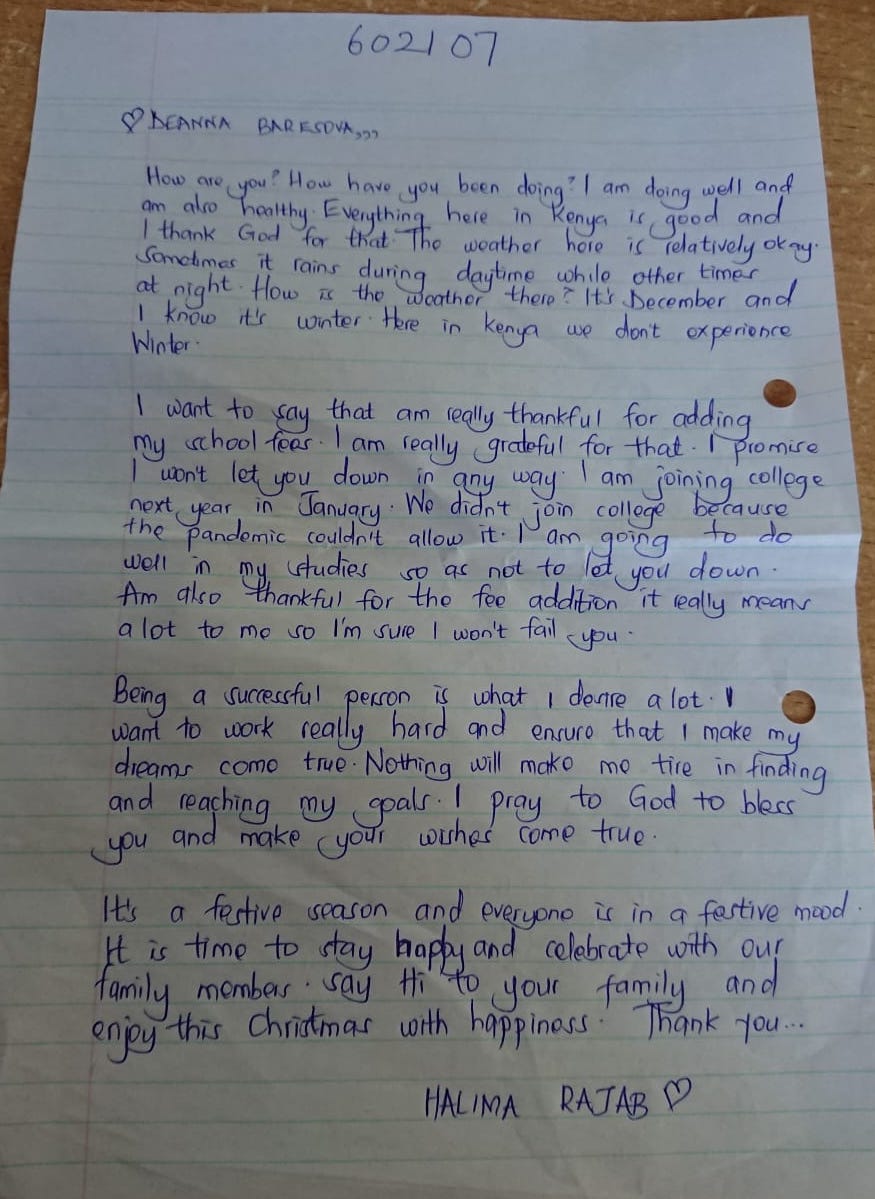 602107
♡ DEANNA BARESOVA,,,
How are you? How have you been doing? I am doing well and
am also healthy. Everything here in Kenya is good and
I thank God for that. The weather here is relatively okay.
Sometimes it rains during daytime while other times
at night. How is the weather there? It's December and
I know it's winter. Here in Kenya we don't experience
Winter.
I want to say that am really thankful for adding
my school fees. I am really grateful for that. I promise
I won't let you down in any way. I am joining college
next year in January. We didn't join college because
the pandemic couldn't allow it. I am going to do
well in my studies so as not to let you down.
Am also thankful for the fee addition it really means
a lot to me so I'm sure I won't fail you.
Being a successful person is what I desire a lot. I
want to work really hard and ensure that I make my
dreams come true. Nothing will make me tire in finding
and reaching my goals. I pray to God to bless
you and make your wishes come true.
It's a festive season and everyone is in a festive mood.
It is time to stay happy and celebrate with our
family members. say Hi to your family and
enjoy this Christmas with happiness. Thank you...
HALIMA RAJAB ♡